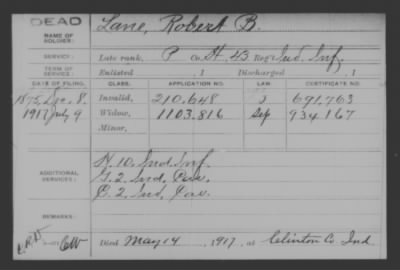 DEAD
NAME OF SOLDIER: Lane, Robert B.
SERVICE: Late rank, P Co. H, 43 Reg't Ind. Inf.
TERM OF SERVICE: Enlisted , 1 Discharged , 1
DATE OF FILING. CLASS. APPLICATION NO. LAW. CERTIFICATE NO.
1875, Jan. 8. Invalid, 210.648 691,763
1917 July 9 Widow, 1103.816 Sep 934.167
Minor,
ADDITIONAL SERVICES:
H. 10. Ind. Inf.
G. 2. Ind. Cav.
C. 2. Ind. Cav.
REMARKS:
C & D
CW
Died May 14, 1917, at Clinton Co. Ind